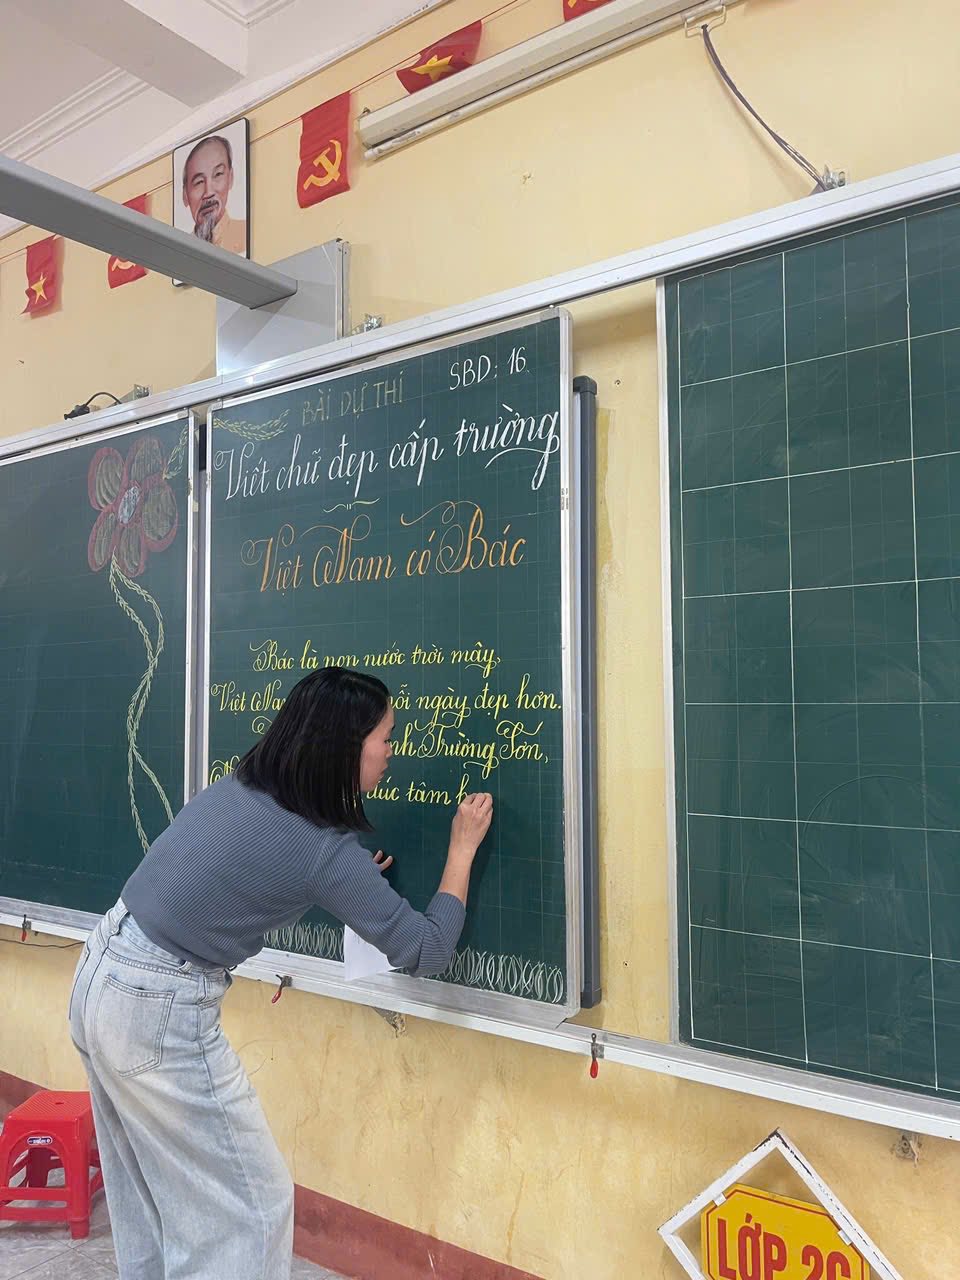 BÀI DỰ THI
SBD: 16
Viết chữ đẹp cấp trường
Việt Nam có Bác
Bác là non nước trời mây,
Việt Na mỗi ngày đẹp hơn.
nh Trường Sơn,
đúc tâm h
LỚP 2C